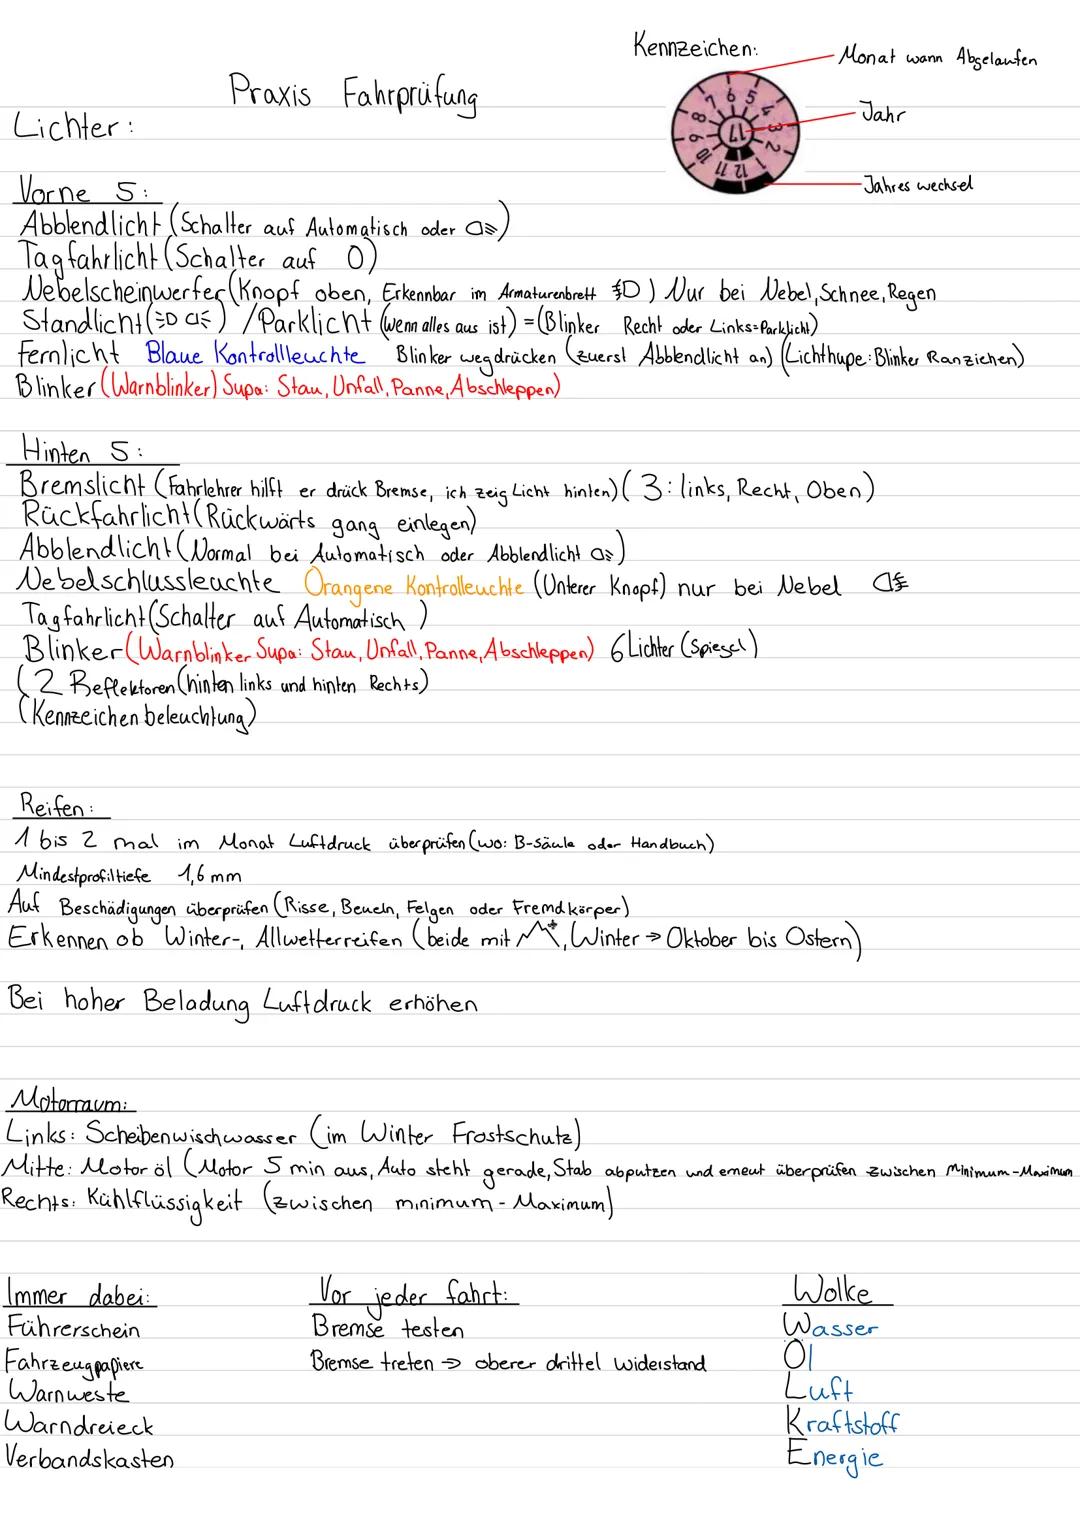 Kennzeichen:
Monat wann Abgelaufen
Praxis Fahrprüfung
Jahr
Lichter:
Jahres wechsel
1 2 3 4 5 6 7 8 9 10 11 12
17
Vorne 5:
Abblendlicht (Schalter auf Automatisch oder)
Tagfahrlicht (Schalter auf O)
Nebelscheinwerfer (Knopf oben, Erkennbar im Armaturenbrett) Nur bei Nebel, Schnee, Regen
Standlicht ( ) /Parklicht (wenn alles aus ist) = (Blinker Recht oder Links=Parklicht)
Fernlicht Blaue Kontrollleuchte Blinker wegdrücken (zuerst Abblendlicht an) (Lichthupe: Blinker Ranziehen)
Blinker (Warnblinker) Supa: Stau, Unfall, Panne, Abschleppen)
Hinten 5:
Bremslicht (Fahrlehrer hilft er drück Bremse, ich zeig Licht hinten) (3: links, Recht, Oben)
Rückfahrlicht (Rückwärts gang einlegen)
Abblendlicht (Normal bei Automatisch oder Abblendlicht)
Nebelschlussleuchte Orangene Kontrolleuchte (Unterer Knopf) nur bei Nebel
Tagfahrlicht (Schalter auf Automatisch )
Blinker (Warnblinker Supa: Stau, Unfall, Panne, Abschleppen) 6 Lichter (Spiegel)
(2 Reflektoren (hinten links und hinten Rechts)
(Kennzeichen beleuchtung)
Reifen:
1 bis 2 mal im Monat Luftdruck überprüfen (wo: B-säule oder Handbuch)
Mindestprofiltiefe 1,6 mm
Auf Beschädigungen überprüfen (Risse, Beueln, Felgen oder Fremdkörper)
Erkennen ob Winter-, Allwetterreifen (beide mit , Winter → Oktober bis Ostern)
Bei hoher Beladung Luftdruck erhöhen
Motorraum:
Links: Scheibenwischwasser (im Winter Frostschutz)
Mitte: Motor öl (Motor 5 min aus, Auto steht gerade, Stab abputzen und erneut überprüfen zwischen Minimum-Maximum
Rechts: Kühlflüssigkeit (zwischen minimum - Maximum)
Immer dabei:
Führerschein
Fahrzeugpapiere
Warnweste
Warndreieck
Verbandskasten
Vor jeder fahrt:
Bremse testen
Bremse treten → oberer drittel widerstand
Wolke
Wasser
Öl
Luft
Kraftstoff
Energie